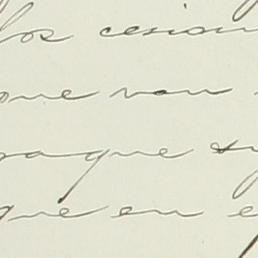 los cesion
que van
pague
que en e